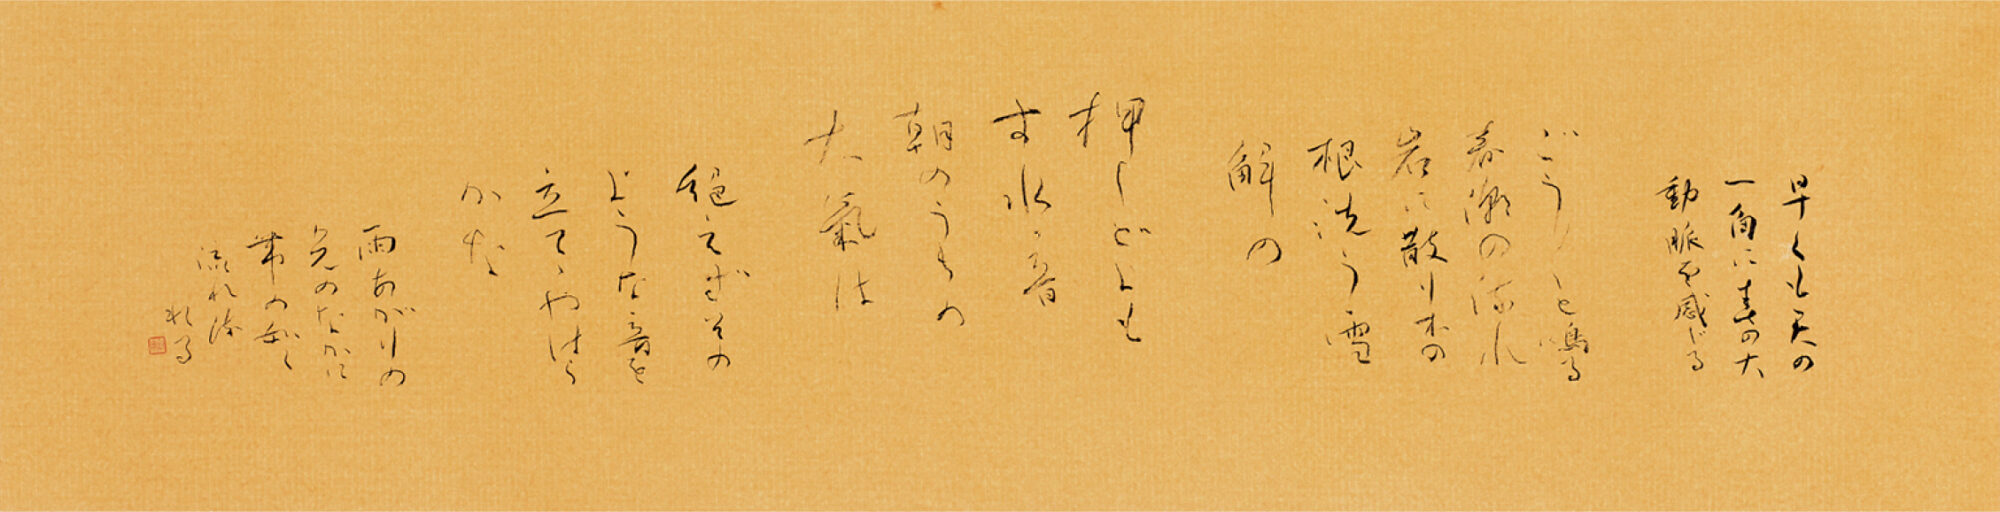 早くも天の
一角に春の大
動脈を感じる
ごう〱と鳴る
春潮の流れ
岩に散り木の
根洗う雪
解の
押しどよも
す水 音
朝のうちの
大氣は
絶えずその
ような音を
立てゝやはら
かな
雨あがりの
光のなかに
帯の如く
流れ